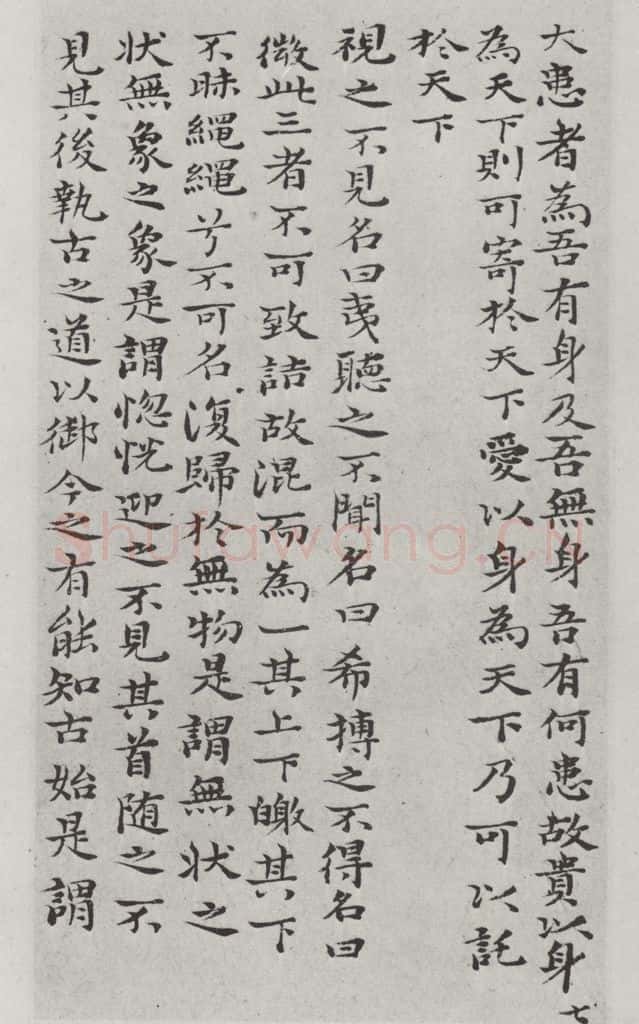 大患者為吾有身及吾無身吾有何患故貴以身
為天下則可寄於天下愛以身為天下乃可以託
於天下
視之不見名曰夷聽之不聞名曰希摶之不得名曰
微此三者不可致詰故混而為一其上下皦其下
不昧繩繩兮不可名復歸於無物是謂無状之
状無象之象是謂惚恍迎之不見其首随之不
見其後執古之道以御今之有能知古始是謂
七
Shufawang.CN